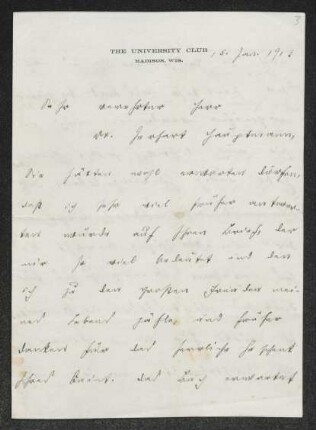 3
THE UNIVERSITY CLUB
MADISON, WIS.
15. Jan. 1913
Sehr verehrter Herr
Dr. Gerhart Hauptmann,
Sie hätten wohl erwarten dürfen,
daß ich sehr viel früher antwor-
ten würde auf Ihren Brief, der
mir so viel bedeutet und den
ich zu den großen Freuden mei-
nes Lebens zähle, und früher
danken für das herrliche Geschenk
Ihres Buches. Das Buch erwartet